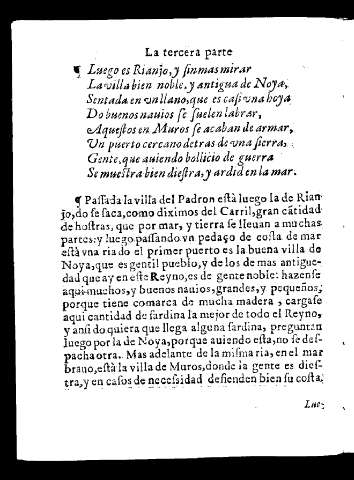 La tercera parte
¶ Luego es Rianjo, y ſin mas mirar
La villa bien noble, y antigua de Noya,
Sentada en vn llano, que es caſi vna hoya
Do buenos nauios ſe ſuelen labrar,
Aqueſtos en Muros ſe acaban de armar,
Vn puerto cercano detras de vna ſierra,
Gente, que auiendo bollicio de guerra
Se mueſtra bien dieſtra, y ardid en la mar.
¶ Paſſada la villa del Padron eſtà luego la de Rian
jo, do ſe ſaca, como diximos del Carril, gran cãtidad
de hoſtras, que por mar, y tierra ſe lleuan a muchas
partes: y luego paſſando vn pedaço de coſta de mar
eſtà vna ria do el primer puerto es la buena villa do
Noya, que es gentil pueblo, y de los de mas antigue-
dad que ay en eſte Reyno, es de gente noble: hazenſe
aqui muchos, y buenos nauios, grandes, y pequeños,
porque tiene comarca de mucha madera, cargaſe
aqui cantidad de ſardina la mejor de todo el Reyno,
y anſi do quiera que llega alguna ſardina, preguntan
luego por la de Noya, porque auiendo eſta, no ſe deſ-
pacha otra. Mas adelante de la miſma ria, en el mar
brauo, eſtà la villa de Muros, donde la gente es dieſ-
tra, y en caſos de neceſsidad defienden bien ſu coſta,
Lue-